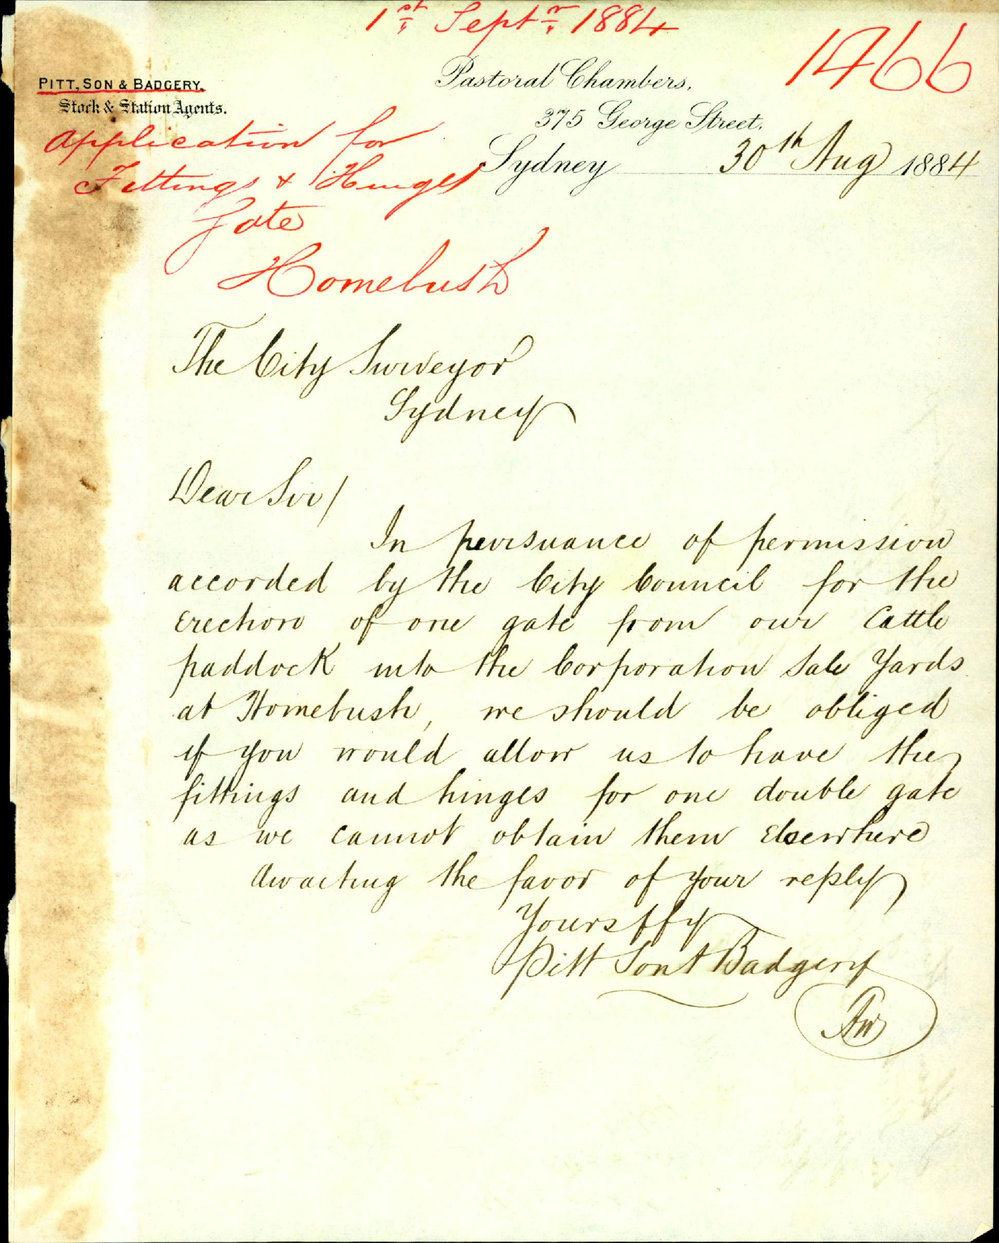 1st Septr 1884
1466
PITT, SON & BADGERY.
Stock & Station Agents.
Pastoral Chambers,
375 George Street,
Sydney 30th Aug 1884
Application for
Fittings & Hinges
Gate
Homebush
The City Surveyor
Sydney
Dear Sir/
In persuance of permission
accorded by the City Council for the
Erection of one gate from our Cattle
paddock into the Corporation Sale Yards
at Homebush, we should be obliged
if you would allow us to have the
fittings and hinges for one double gate
as we cannot obtain them Elsewhere
Awaiting the favor of your reply
Yours ffy
Pitt Son & Badgery